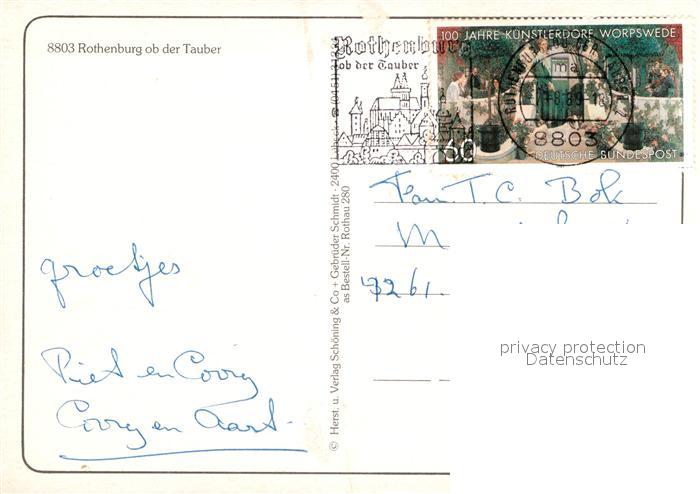 8803 Rothenburg ob der Tauber
Rothenburg
ob der Tauber
100 JAHRE KÜNSTLERDORF WORPSWEDE
8803
60
DEUTSCHE BUNDESPOST
© Herst. u. Verlag Schöning & Co + Gebrüder Schmidt - 2400
as Bestell-Nr. Rothau 280
Fam T.C. Bok
M
3261
groetjes
Piet en Corry
Corry en Aart
privacy protection
Datenschutz